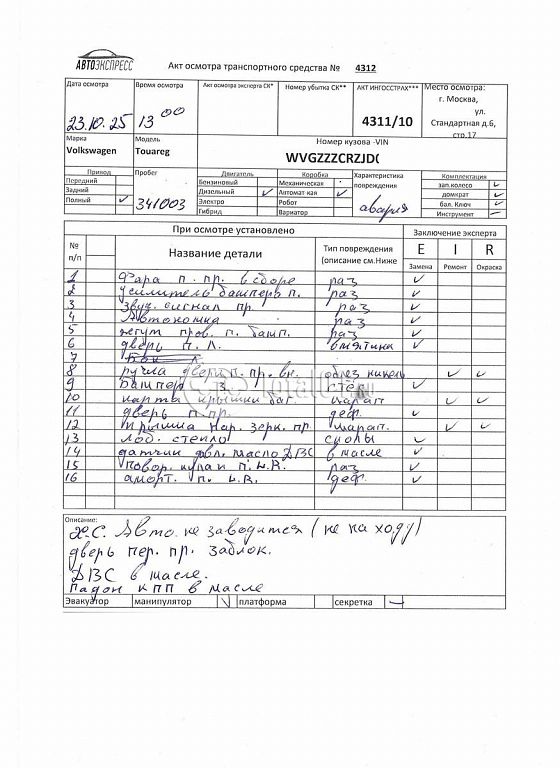 АВТОЭКСПРЕСС
Акт осмотра транспортного средства № 4312
Дата осмотра Время осмотра Акт осмотра эксперта СК* Номер убытка СК** АКТ ИНГОССТРАХ*** Место осмотра:
23.10.25 13 00 4311/10 г. Москва, ул. Стандартная д.6, стр.17
Марка Модель Номер кузова -VIN
Volkswagen Touareg WVGZZZCRZJD
Привод Пробег Двигатель Коробка Характеристика повреждения Комплектация
Передний Бензиновый Механическая зап.колесо
Задний Дизельный Автомат кая домкрат
Полный 341003 Электро Робот авария бал. Ключ
Гибрид Вариатор Инструмент
При осмотре установлено Заключение эксперта
№ п/п Название детали Тип повреждения (описание см.Ниже E I R
Замена Ремонт Окраска
1 Фара п. пр. в сборе раз
2 усилитель бампера п. раз
3 звук. сигнал пр. раз
4 Автокошка раз
5 жгут пров. п. бамп. раз
6 дверь п. л. вмятина
7
8 ручка двери п. пр. вн. облез никель
9 Бампер з.
10 карта крышки баг. царап
11 дверь п. пр. деф.
12 крышка нар. зерк. пр царап.
13 лоб. стекло сколы
14 датчик двл. масло ДВС в масле
15 повор. кулак п. L.R. раз
16 аморт. п. L.R. деф.
TotalCar.ru
Описание:
х.С. Авто не заводится (не на ходу)
дверь пер. пр. заблок.
ДВС в масле.
Падон КПП в масле
Эвакуатор манипулятор платформа секретка